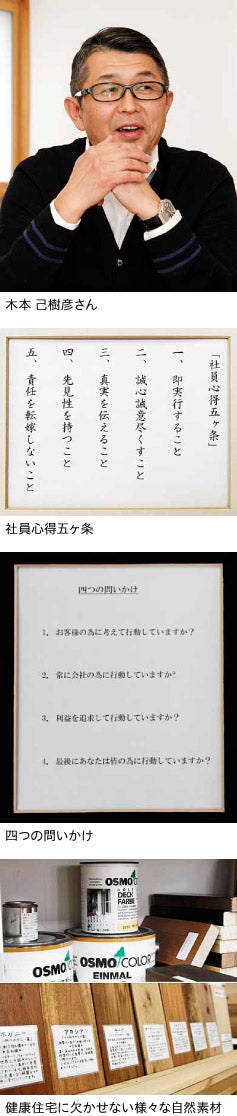 木本 己樹彦さん
「社員心得五ヶ条」
一、即実行すること
二、誠心誠意尽くすこと
三、真実を伝えること
四、先見性を持つこと
五、責任を転嫁しないこと
社員心得五ヶ条
四つの問いかけ
1. お客様の為に考えて行動していますか？
2. 常に会社の為に行動していますか?
3. 利益を追求して行動していますか？
4. 最後にあなたは皆の為に行動していますか？
四つの問いかけ
OSMO
HOLZ
DECK
FARBE
OSMO
OSMO COLOR
EINMAL
アカシア
健康住宅に欠かせない様々な自然素材